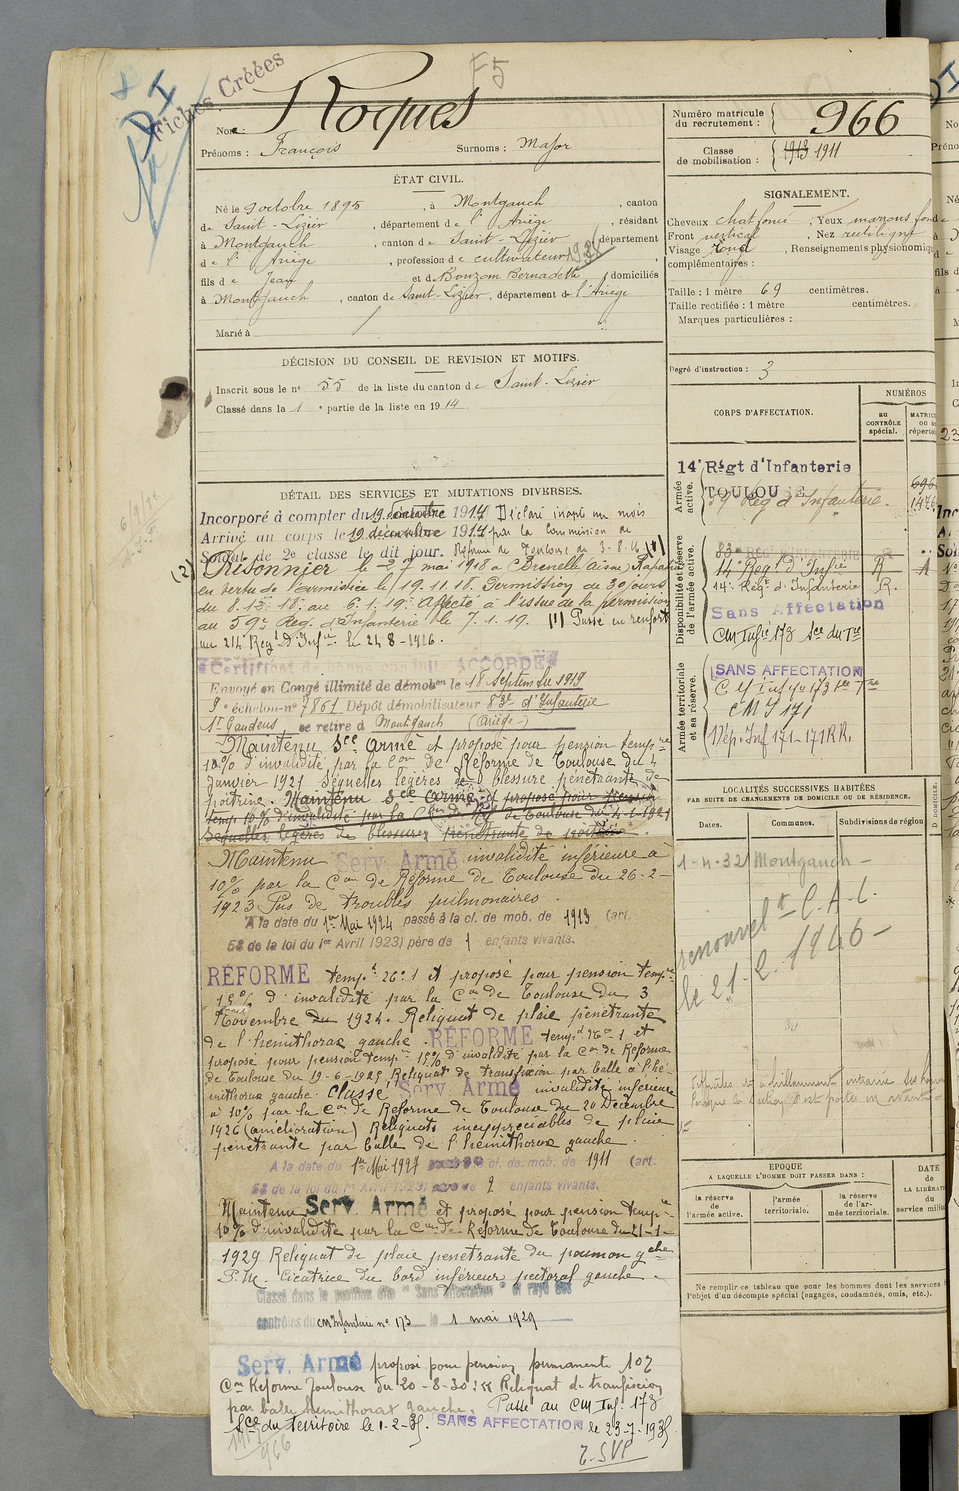 F5
Fiches Créées
DI
Nom : Roques
Prénoms : François Surnoms : Major
Numéro matricule du recrutement : 966
Classe de mobilisation : 1913 1911
ÉTAT CIVIL.
Né le 9 octobre 1895, à Montgauch, canton
de Saint-Lizier, département de l'Ariège, résidant
à Montgauch, canton de Saint-Lizier, département
d e l'Ariège, profession de cultivateur
fils de Jean et de Bouzom Bernadette, domiciliés
à Montgauch, canton de Saint-Lizier, département de l'Ariège
Marié à
SIGNALEMENT.
Cheveux chat foncé, Yeux marrons foncé
Front vertical, Nez rectiligne
Visage rond, Renseignements physionomiq
complémentaires :
Taille : 1 mètre 69 centimètres.
Taille rectifiée : 1 mètre centimètres.
Marques particulières :
Degré d'instruction : 3
DÉCISION DU CONSEIL DE REVISION ET MOTIFS.
Inscrit sous le n° 55 de la liste du canton de Saint-Lizier
Classé dans la 1e partie de la liste en 1914
CORPS D'AFFECTATION.
NUMÉROS
au CONTRÔLE spécial.
MATRIC ou au répertoi
Armée active.
14e Régt d'Infanterie
TOULOUSE
59 Rég d'Infanterie.
696
1476
Disponibilité et réserve de l'armée active.
83e REGT D'INFANTERIE R
14e Regt d'Infie R A
14e Régt d'Infanterie R.
Sans Affectation
CM Infie 173 Sce du Tre
Armée territoriale et sa réserve.
SANS AFFECTATION
CM Infie 173 Sce Tre
CMI 171
Dép. Inf 171-171 RR.
DÉTAIL DES SERVICES ET MUTATIONS DIVERSES.
Incorporé à compter du 19 décembre 1914 Déclaré inapte un mois
Arrivé au corps le 19 décembre 1914 par la Commission de
Soldat de 2e classe le dit jour. Réforme de Toulouse du 3-8-16 (1)
(2) Prisonnier le 27 mai 1918 à (Brenelle Aisne) Rapatrié
en vertu de l'armistice le 19.11.18. Permission de 30 jours
du 8.12.18. au 6.1.19. Affecté à l'issue de la permission
au 59e Reg. d'Infanterie le 7.1.19. (1) Passé en renfort
au 214 Regt d'Infie le 24 8-1916.
Certificat de bonne conduite ACCORDÉ
Envoyé en Congé illimité de démobon le 18 Septembre 1919
9e échelon n° 7861 Dépôt démobilisateur 83e d'Infanterie
St Gaudens se retire à Montgauch (Ariège)
Maintenu Sce armé et proposé pour pension tempre
10% d'invalidité par la Con de Réforme de Toulouse du 4
Janvier 1921 Séquelles légères de blessure pénétrante de
poitrine. Maintenu Sce armé et proposé pour pension
temp 10% d'invalidité par la Con de Réf de Toulouse du 4-1-1921
Séquelles légères de blessures pénétrante de poitrine.
Maintenu Serv. Armé invalidité inférieure à
10% par la Con de Réforme de Toulouse du 26-2-
1923 Pas de troubles pulmonaires.
A la date du 1er Mai 1924 passé à la cl. de mob. de 1913 (art.
58 de la loi du 1er Avril 1923) père de 1 enfants vivants.
RÉFORMÉ tempt 26e 1 et proposé pour pension tempre
15% d'invalidité par la Con de Toulouse du 3
Novembre 1924. Reliquat de plaie pénétrante
de l'hemithorax gauche. RÉFORMÉ tempt 26e-1 et
proposé pour pension tempre 15% d'invalidité par la Con de Reforme
de Toulouse du 19-6-1925 Reliquat de transfixion par balle à l'hé-
mithorax gauche. Classé Serv. Armé invalidité inférieure
à 10% par la Con de Reforme de Toulouse du 20 Décembre
1926 (amélioration) Reliquats inappréciables de plaie
pénétrante par balle de l'hemithorax gauche.
A la date du 1er Mai 1927 cl. de mob. de 1911 (art.
58 de la loi du 1er Avril 1923) père de 2 enfants vivants.
Maintenu Serv. Armé et proposé pour pension tempre
10% d'invalidité par la Con de Reforme de Toulouse du 21-1-
1929 Reliquat de plaie pénétrante du poumon gche
P.M. Cicatrice du bord inférieur pectoral gauche.
Classé dans la position dite "Sans affectation" et rayé des
contrôles du CM Infanterie n° 173 le 1 mai 1929
Serv. Armé proposé pour pension permanente 10%
Con Reforme Toulouse du 20-8-30 : Reliquat de transfixion
par balle hemithorax gauche. Passé au CM Inf. 173
Sce du Territoire le 1-2-35. SANS AFFECTATION le 23-7-1935
966
T.SVP
LOCALITÉS SUCCESSIVES HABITÉES
PAR SUITE DE CHANGEMENTS DE DOMICILE OU DE RÉSIDENCE.
Dates. Communes. Subdivisions de région
D DOMICILE.
1-4-32 Montgauch
renouvelt C.A.C.
le 21-2-1946
EPOQUE
A LAQUELLE L'HOMME DOIT PASSER DANS :
la réserve de l'armée active.
l'armée territoriale.
la réserve de l'armée territoriale.
DATE de LA LIBÉRAT du service milit
Ne remplir ce tableau que pour les hommes dont les services
l'objet d'un décompte spécial (engagés, condamnés, omis, etc.).